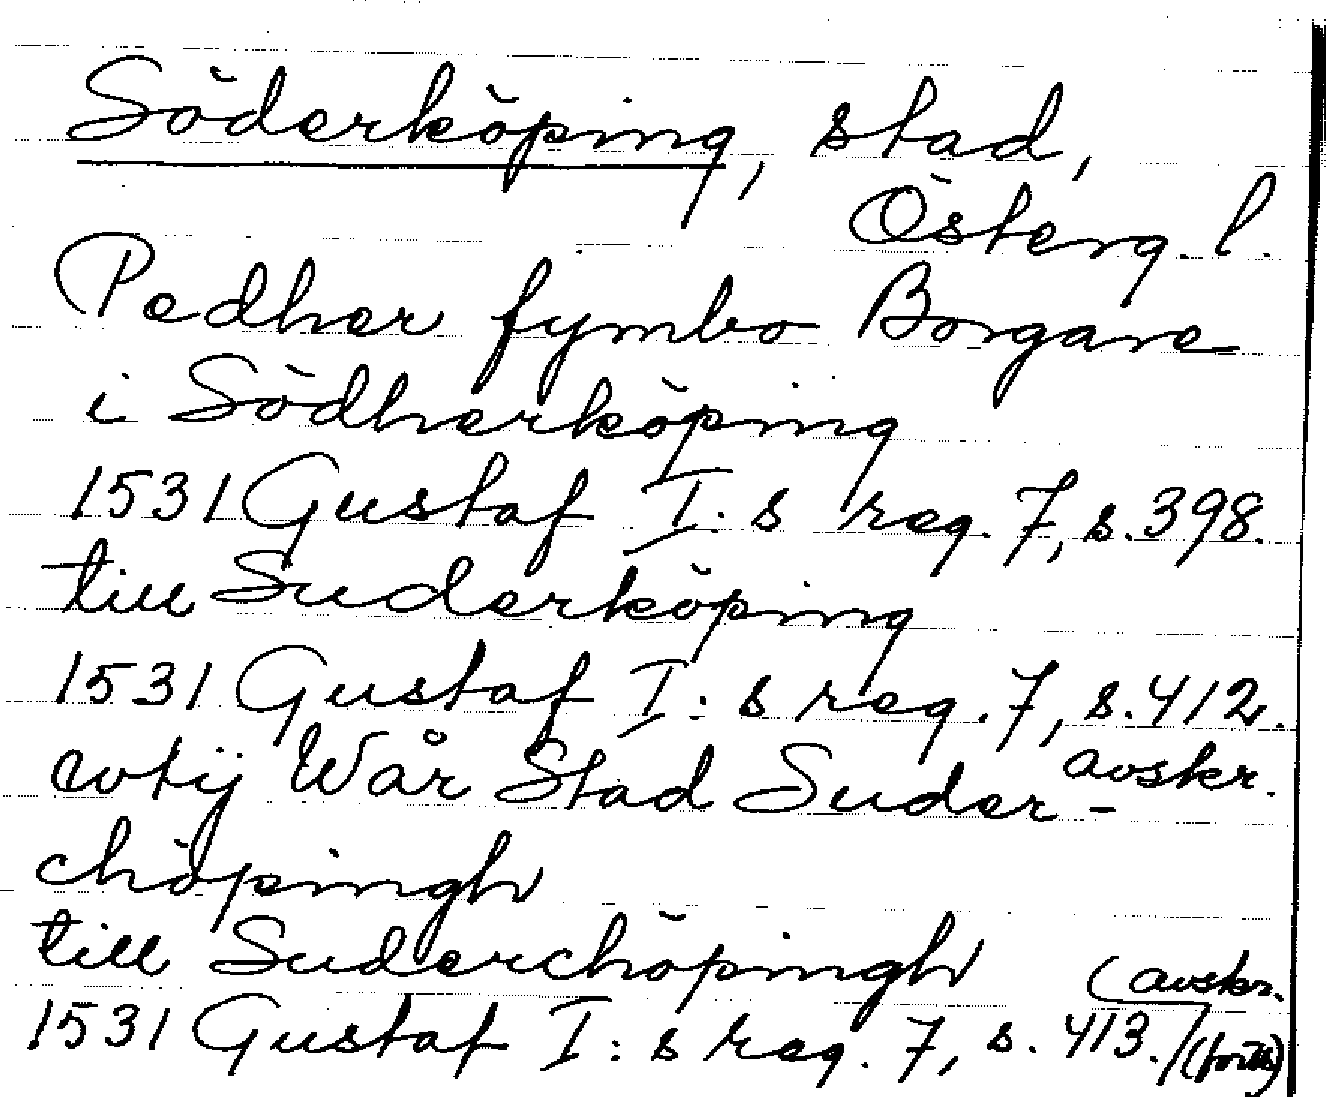 Söderköping, stad,
Österg. l.
Pedher fymbo Borgare
i Södherköping
1531 Gustaf I:s reg. 7, s. 398.
till Suderköping
1531 Gustaf I:s reg. 7, s. 412.
avskr.
wtij Wår Stad Suder-
chöpingh
till Suderchöpingh
(avskr.
1531 Gustaf I:s reg. 7, s. 413./(forts)